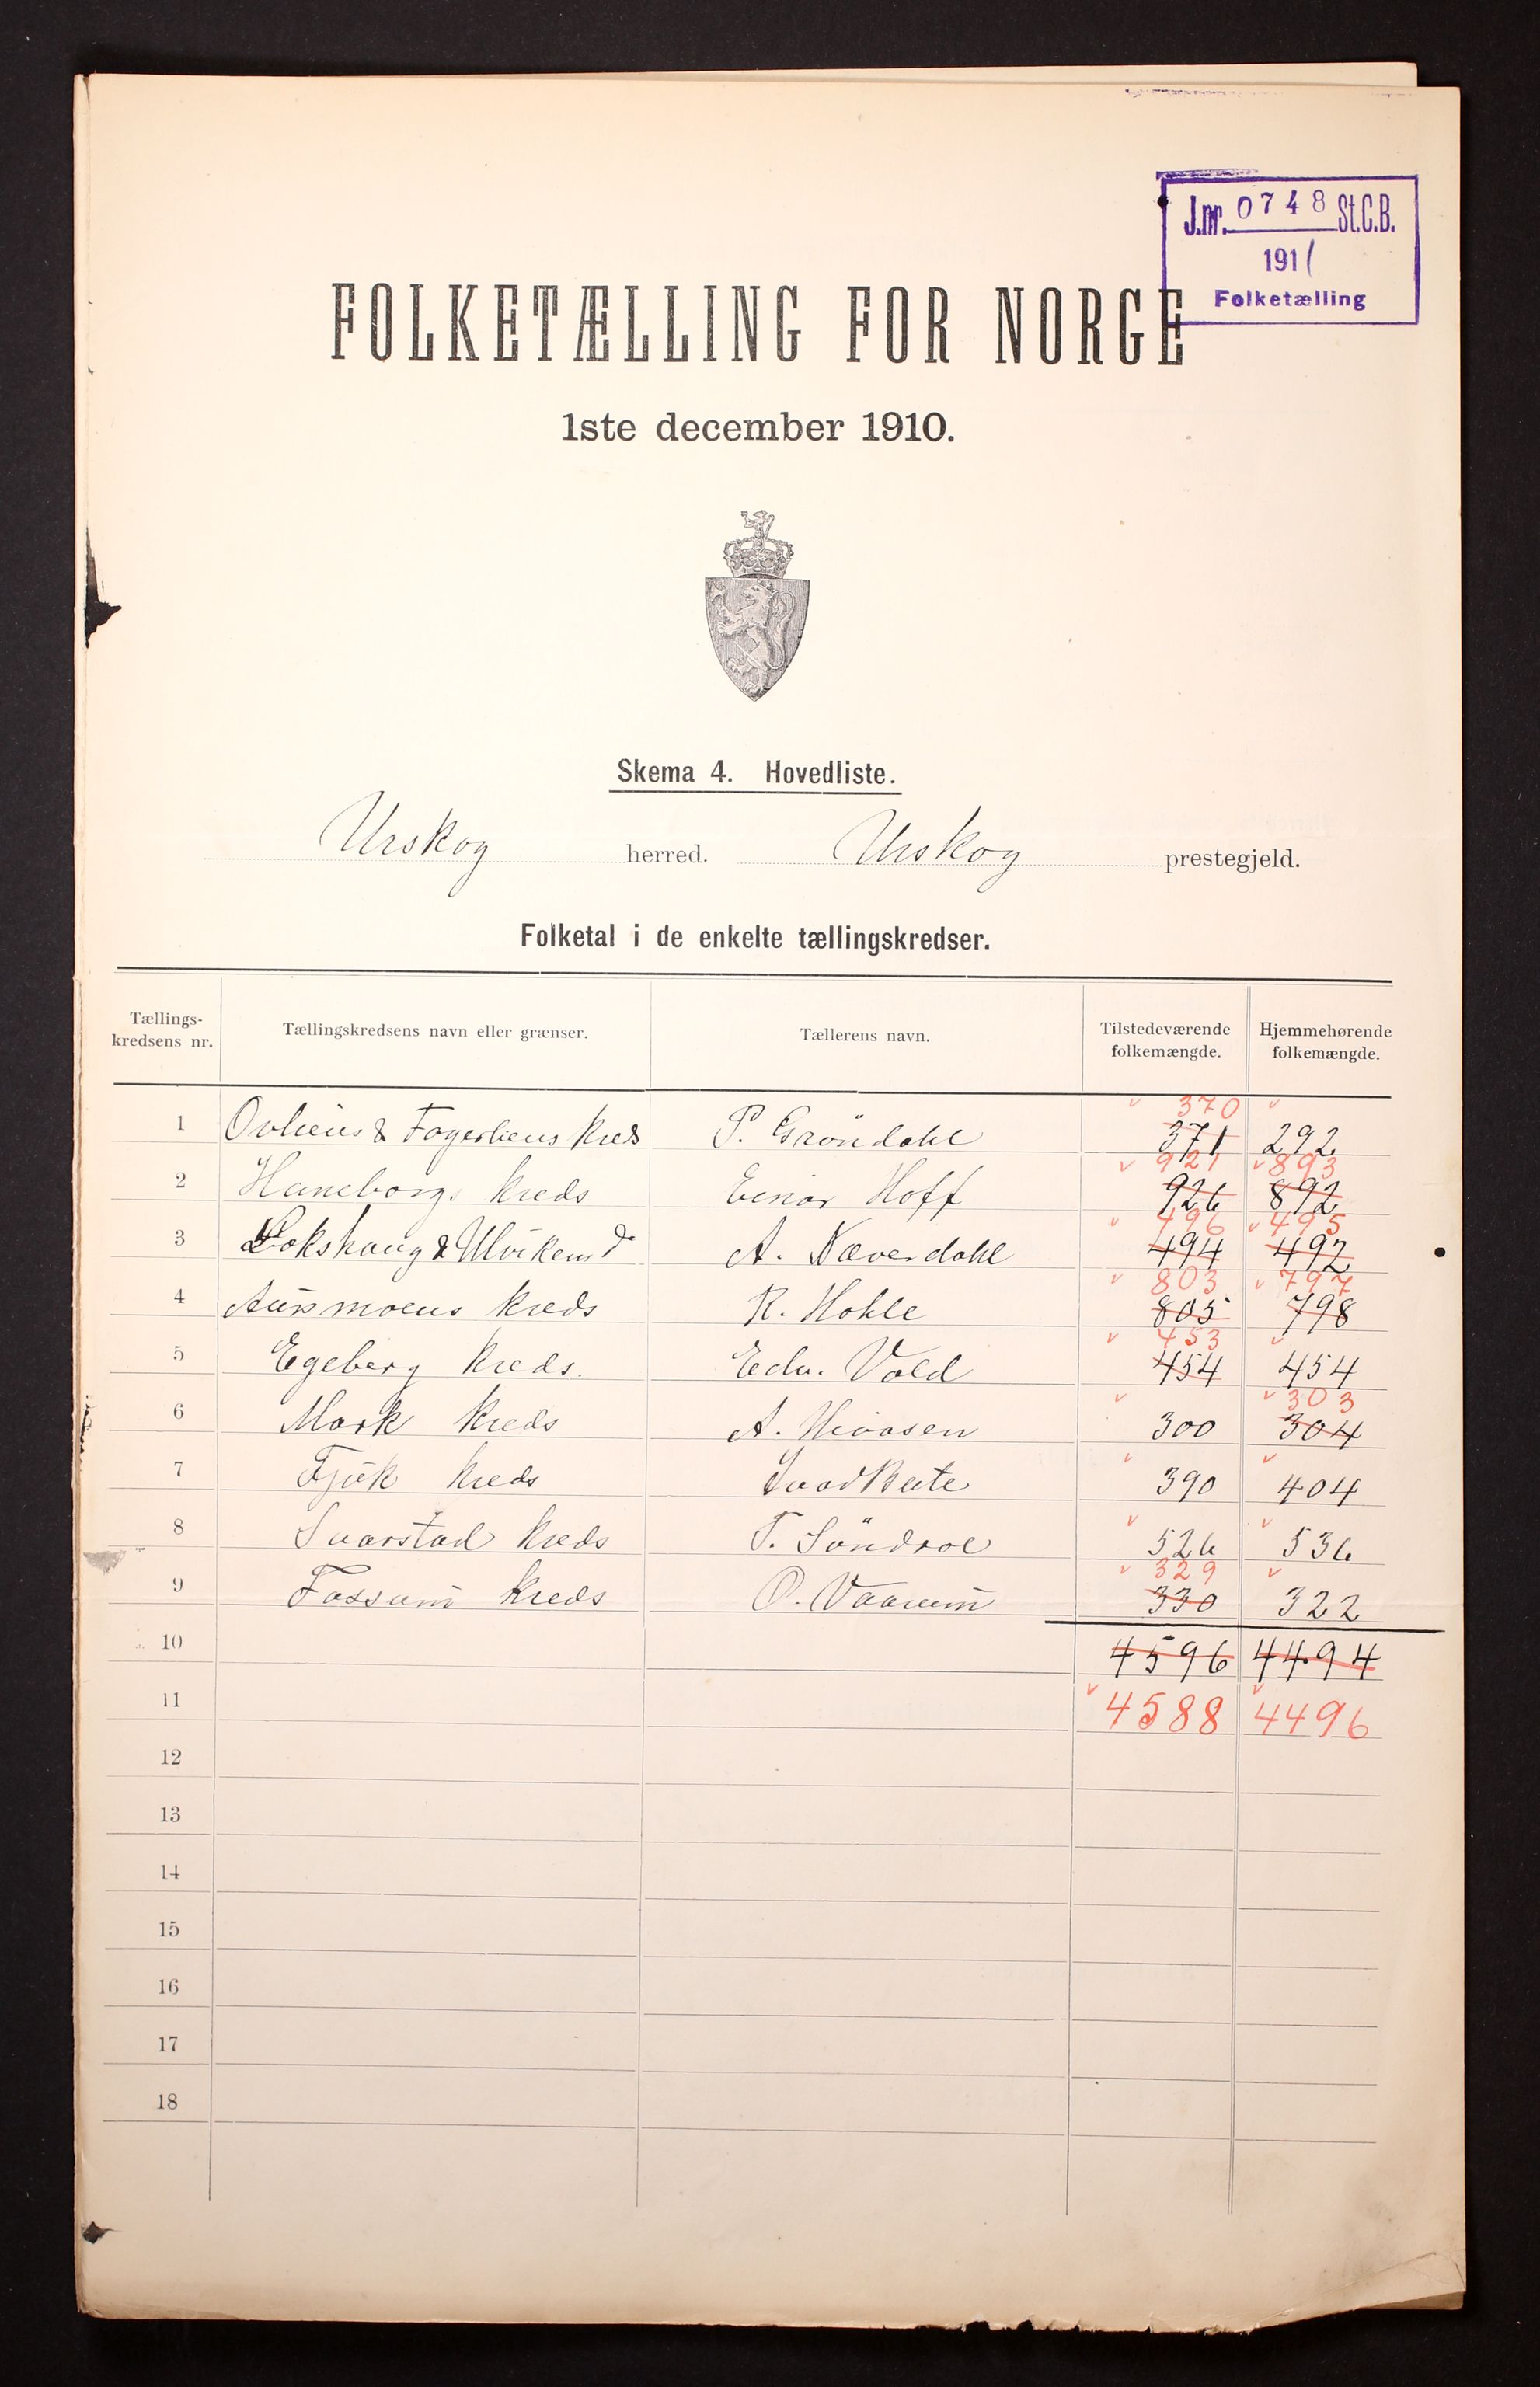 J.nr. 0748 St.C.B.
1911
Folketælling
FOLKETÆLLING FOR NORGE
1ste december 1910.
Skema 4. Hovedliste.
Urskog herred. Urskog prestegjeld.
Folketal i de enkelte tællingskredser.
Tællings-kredsens nr. Tællingskredsens navn eller grænser. Tællerens navn. Tilstedeværende folkemængde. Hjemmehørende folkemængde.
370
1 & kreds P. Gröndahl 371 292
921 893
2 Haneborgs kreds Einar Hoff 926 892
496 495
3 & A. Næverdahl 494 492
803 797
4 Aursmoens kreds R. Hohle 805 798
453
5 Egeberg kreds. Edv. Vold 454 454
303
6 Mork kreds A. 300 304
7 kreds 390 404
8 Svarstad kreds T. 526 536
329
9 Fossum kreds O. Vaarum 330 322
10 4596 4494
11 4588 4496
12
13
14
15
16
17
18